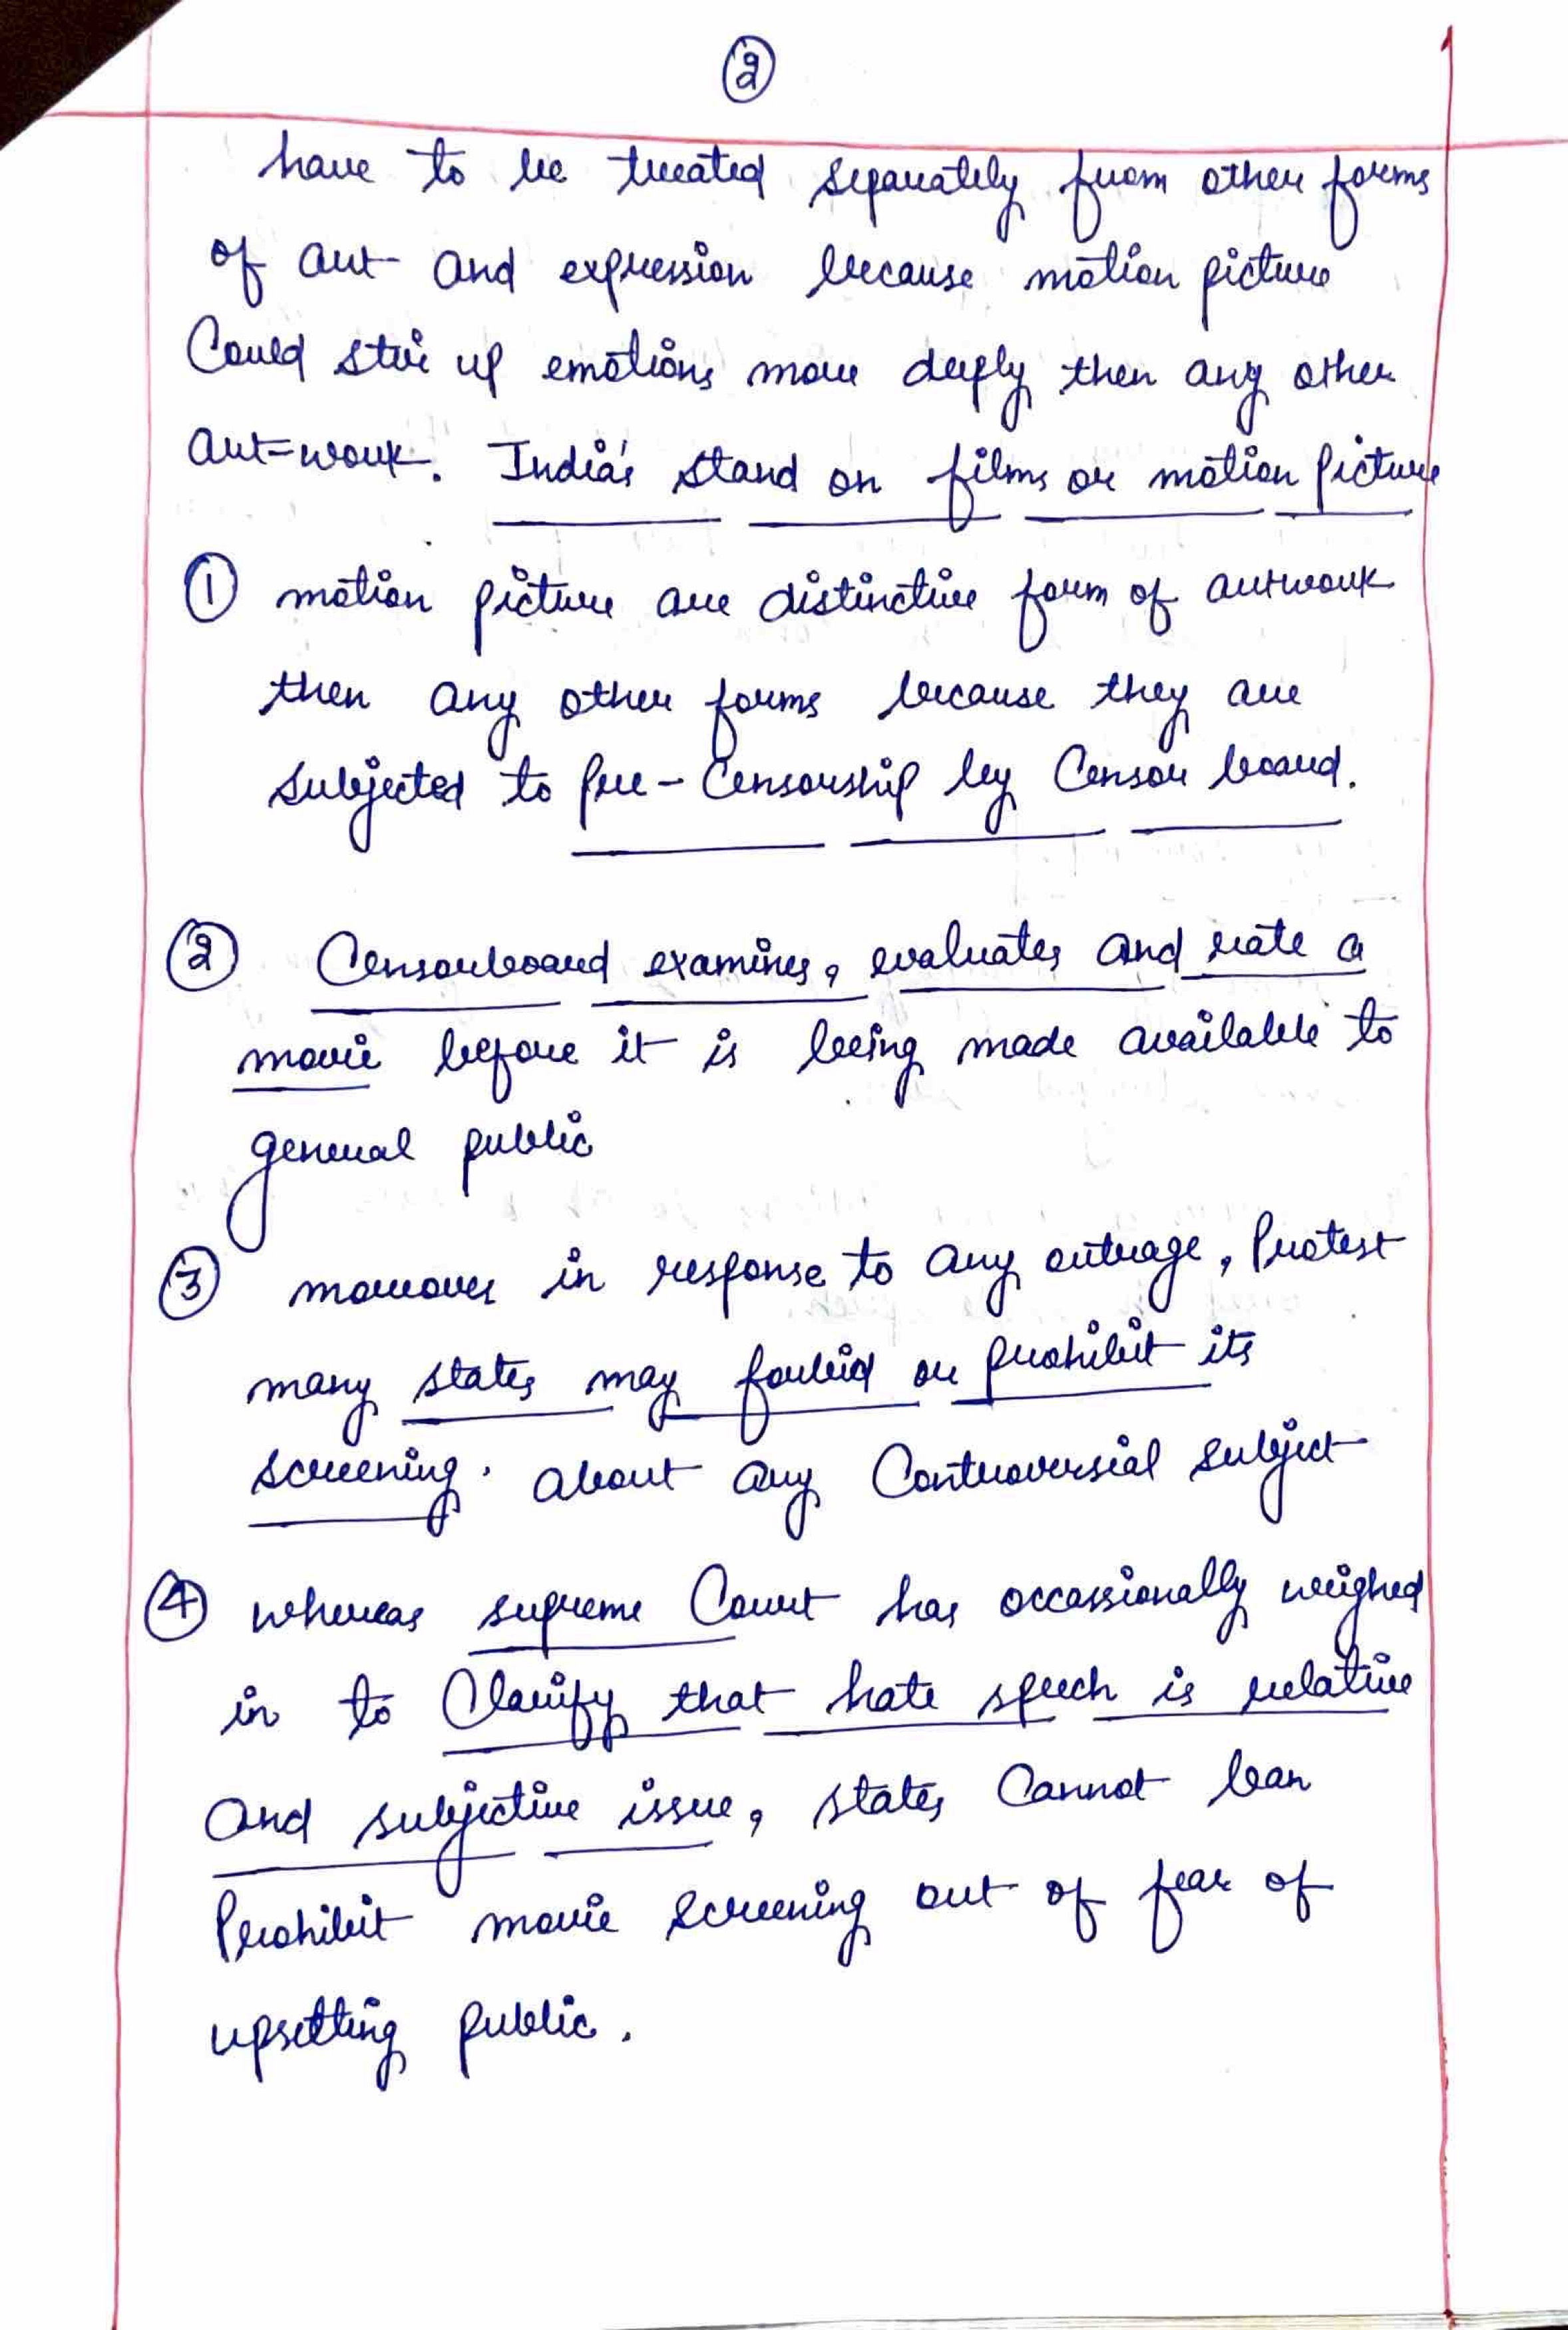 2
have to be treated separately from other forms
of art and expression because motion picture
Could stir up emotions more deeply then any other
art=work. India's stand on films or motion picture
1 motion picture are distinctive form of artwork
then any other forms because they are
subjected to pre-Censorship by Censor board.
2 Censorboard examines, evaluates and rate a
movie before it is being made available to
general public
3 moreover in response to any outrage, Protest
many states may forbid or prohibit its
screening. about any Controversial subject
4 whereas supreme Court has occassionally weighed
in to Clarify that hate speech is relative
and subjective issue, states Cannot ban
Prohibit movie screening out of fear of
upsetting public.